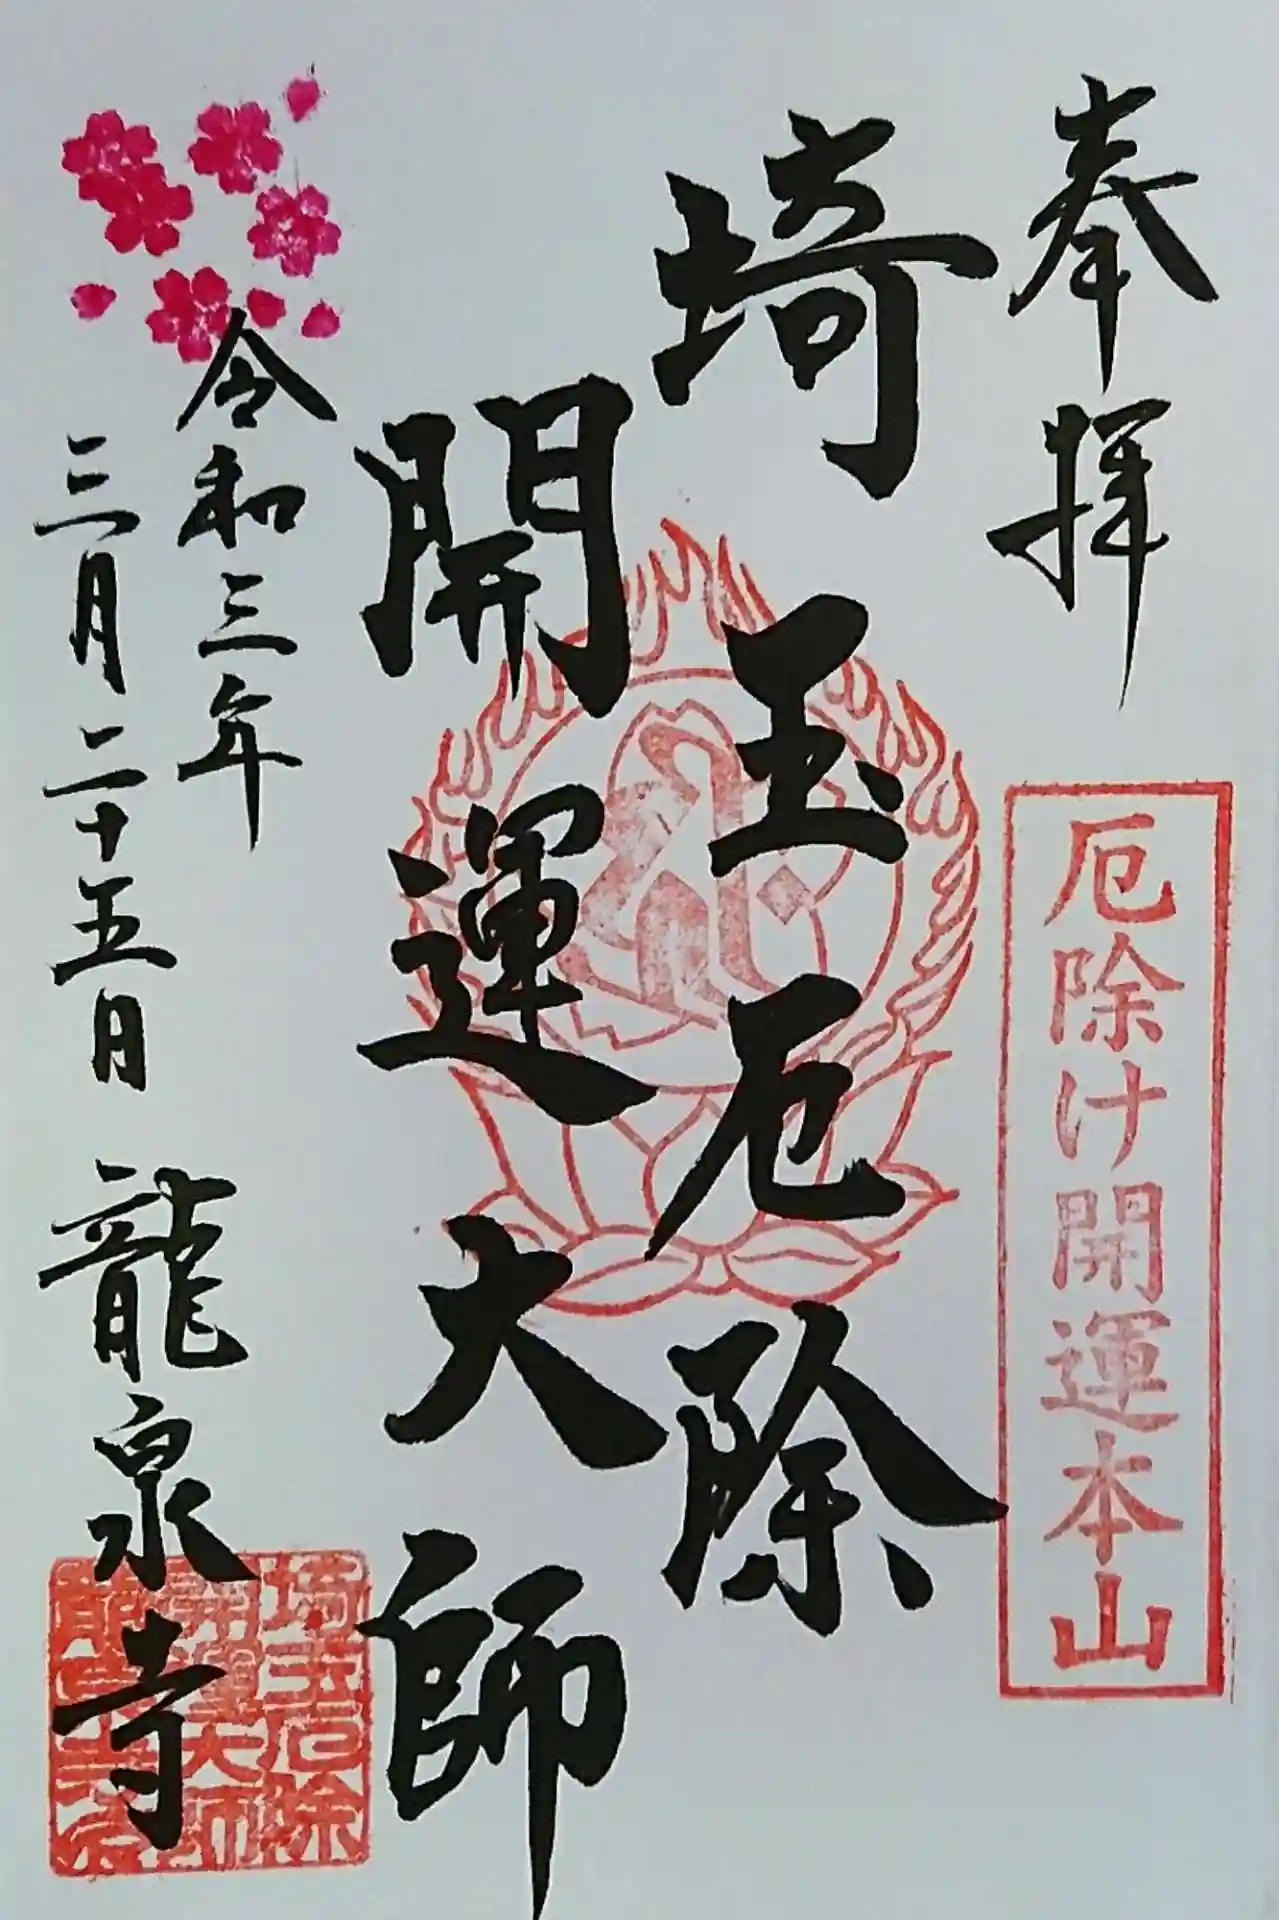 奉拝
厄除け開運本山
埼玉厄除
開運大師
令和三年
三月二十五日
龍泉寺
埼玉厄除
開運大師
龍泉寺